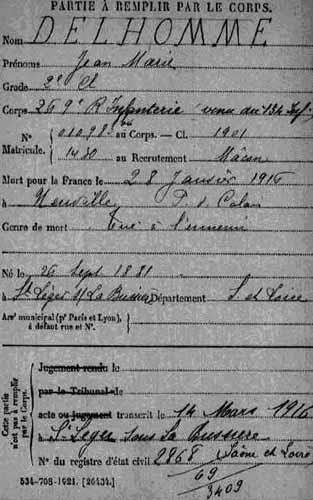 PARTIE À REMPLIR PAR LE CORPS.
Nom DELHOMME
Prénoms Jean Marie
Grade 2e Cl
Corps 269e R Infanterie (venu du 134 Inf)
N° 01098 au Corps. — Cl. 1901
Matricule. 1430 au Recrutement Mâcon
Mort pour la France le 28 Janvier 1916
à Neuville P. d. Calais
Genre de mort Tué à l'ennemi
Né le 26 Sept 1881
à St Léger s/ La Bussière Département S et Loire
Arrt municipal (pr Paris et Lyon),
à défaut rue et N°.
Cette partie
n'est pas à remplir
par le Corps.
Jugement rendu le
par le Tribunal de
acte ou jugement transcrit le 14 Mars 1916
à St Léger sous La Bussière
N° du registre d'état civil 2868 Saône et Loire
69
3409
534-708-1921. [26434.]